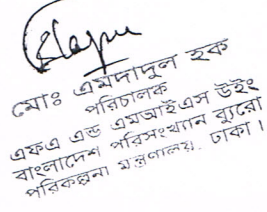 মোঃ এমদাদুল হক
পরিচালক
এফএ এন্ড এমআইএস উইং
বাংলাদেশ পরিসংখ্যান ব্যুরো
পরিকল্পনা মন্ত্রণালয়, ঢাকা।